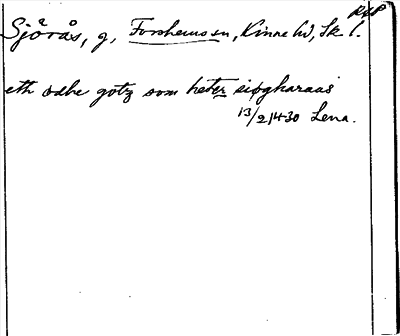 RLP
Sjörås, g, Forshems sn, Kinne hd, Sk. l.
eth ødhe gotz som heter siøgharaas
13/2 1430 Lena.